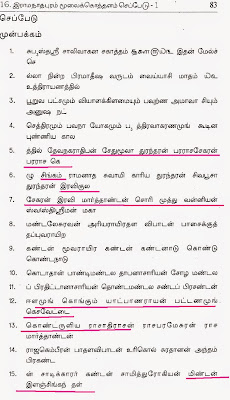 16. இராமநாதபுரம் மூலைக்கொத்தளம் செப்பேடு - 1 83
செப்பேடு
முன்பக்கம்
1. சுபஸ்ஸ்ரீ சாலிவாகன சகாத்தம் இதன் மேல்ச்
செ
2. ல்லா நின்ற பிரமாதீஷ வருடம் வைய்யாசி மாதம்
உத்திராயனத்தில்
3. பூறுவ பட்சமும் வியாளக்கிளமையும் பவுறணை அமாவாசியும்
அனுஷ நட
4. செத்திரமும் பவநா யோகமும் பத்திரவாகரணமுங் கூடின
புண்ணிய கால
5. ந்தில் தேவநகராதிபன் சேதுமூலா துரந்தரன் பரராசசேகரன்
பரராச கெ
6. ழு சிங்கம் ராமனாத சுவாமி காரிய துரந்தரன் சிவபூசா
துரந்தரன் இரவிகுல
7. சேகரன் இரவி மார்த்தாண்டன் சொரி முத்து வன்னியன்
ஸ்வஸ்திஸ்ரீமன் மகா
8. மண்டலேசுவரன் அரியராயிரதள விபாடன் பாசைக்குத்
தப்புவராயிற
9. கண்டன் மூவராயிர கண்டன் கண்டனாடு கொண்டு
கொண்டநாடு
10. கொடாதான் பாண்டிமண்டல தாபனாசாரியன் சோழ மண்டல
11. ப் பிரதிட்டானாசாரியன் தொண்டமண்டல சண்டப் பிரசண்டன்
12. ஈளமுங் கொங்கும் யாட்பாணராயன் பட்டணமுங்
கெசவேட்டை
13. கொண்டருளிய ராசாதிராசன் ராசபரமேசுரன் ராச
மார்த்தாண்டன்
14. ராஜகெம்பீரன் பாதளவிபாடன் உரிகொல் சுரதானன் அந்தம
பிரகண்ட
15. ன் சாடிக்காரர் கண்டன் சாமித்துரோகியன் மிண்டன்
இளஞ்சிங்கந் தள்